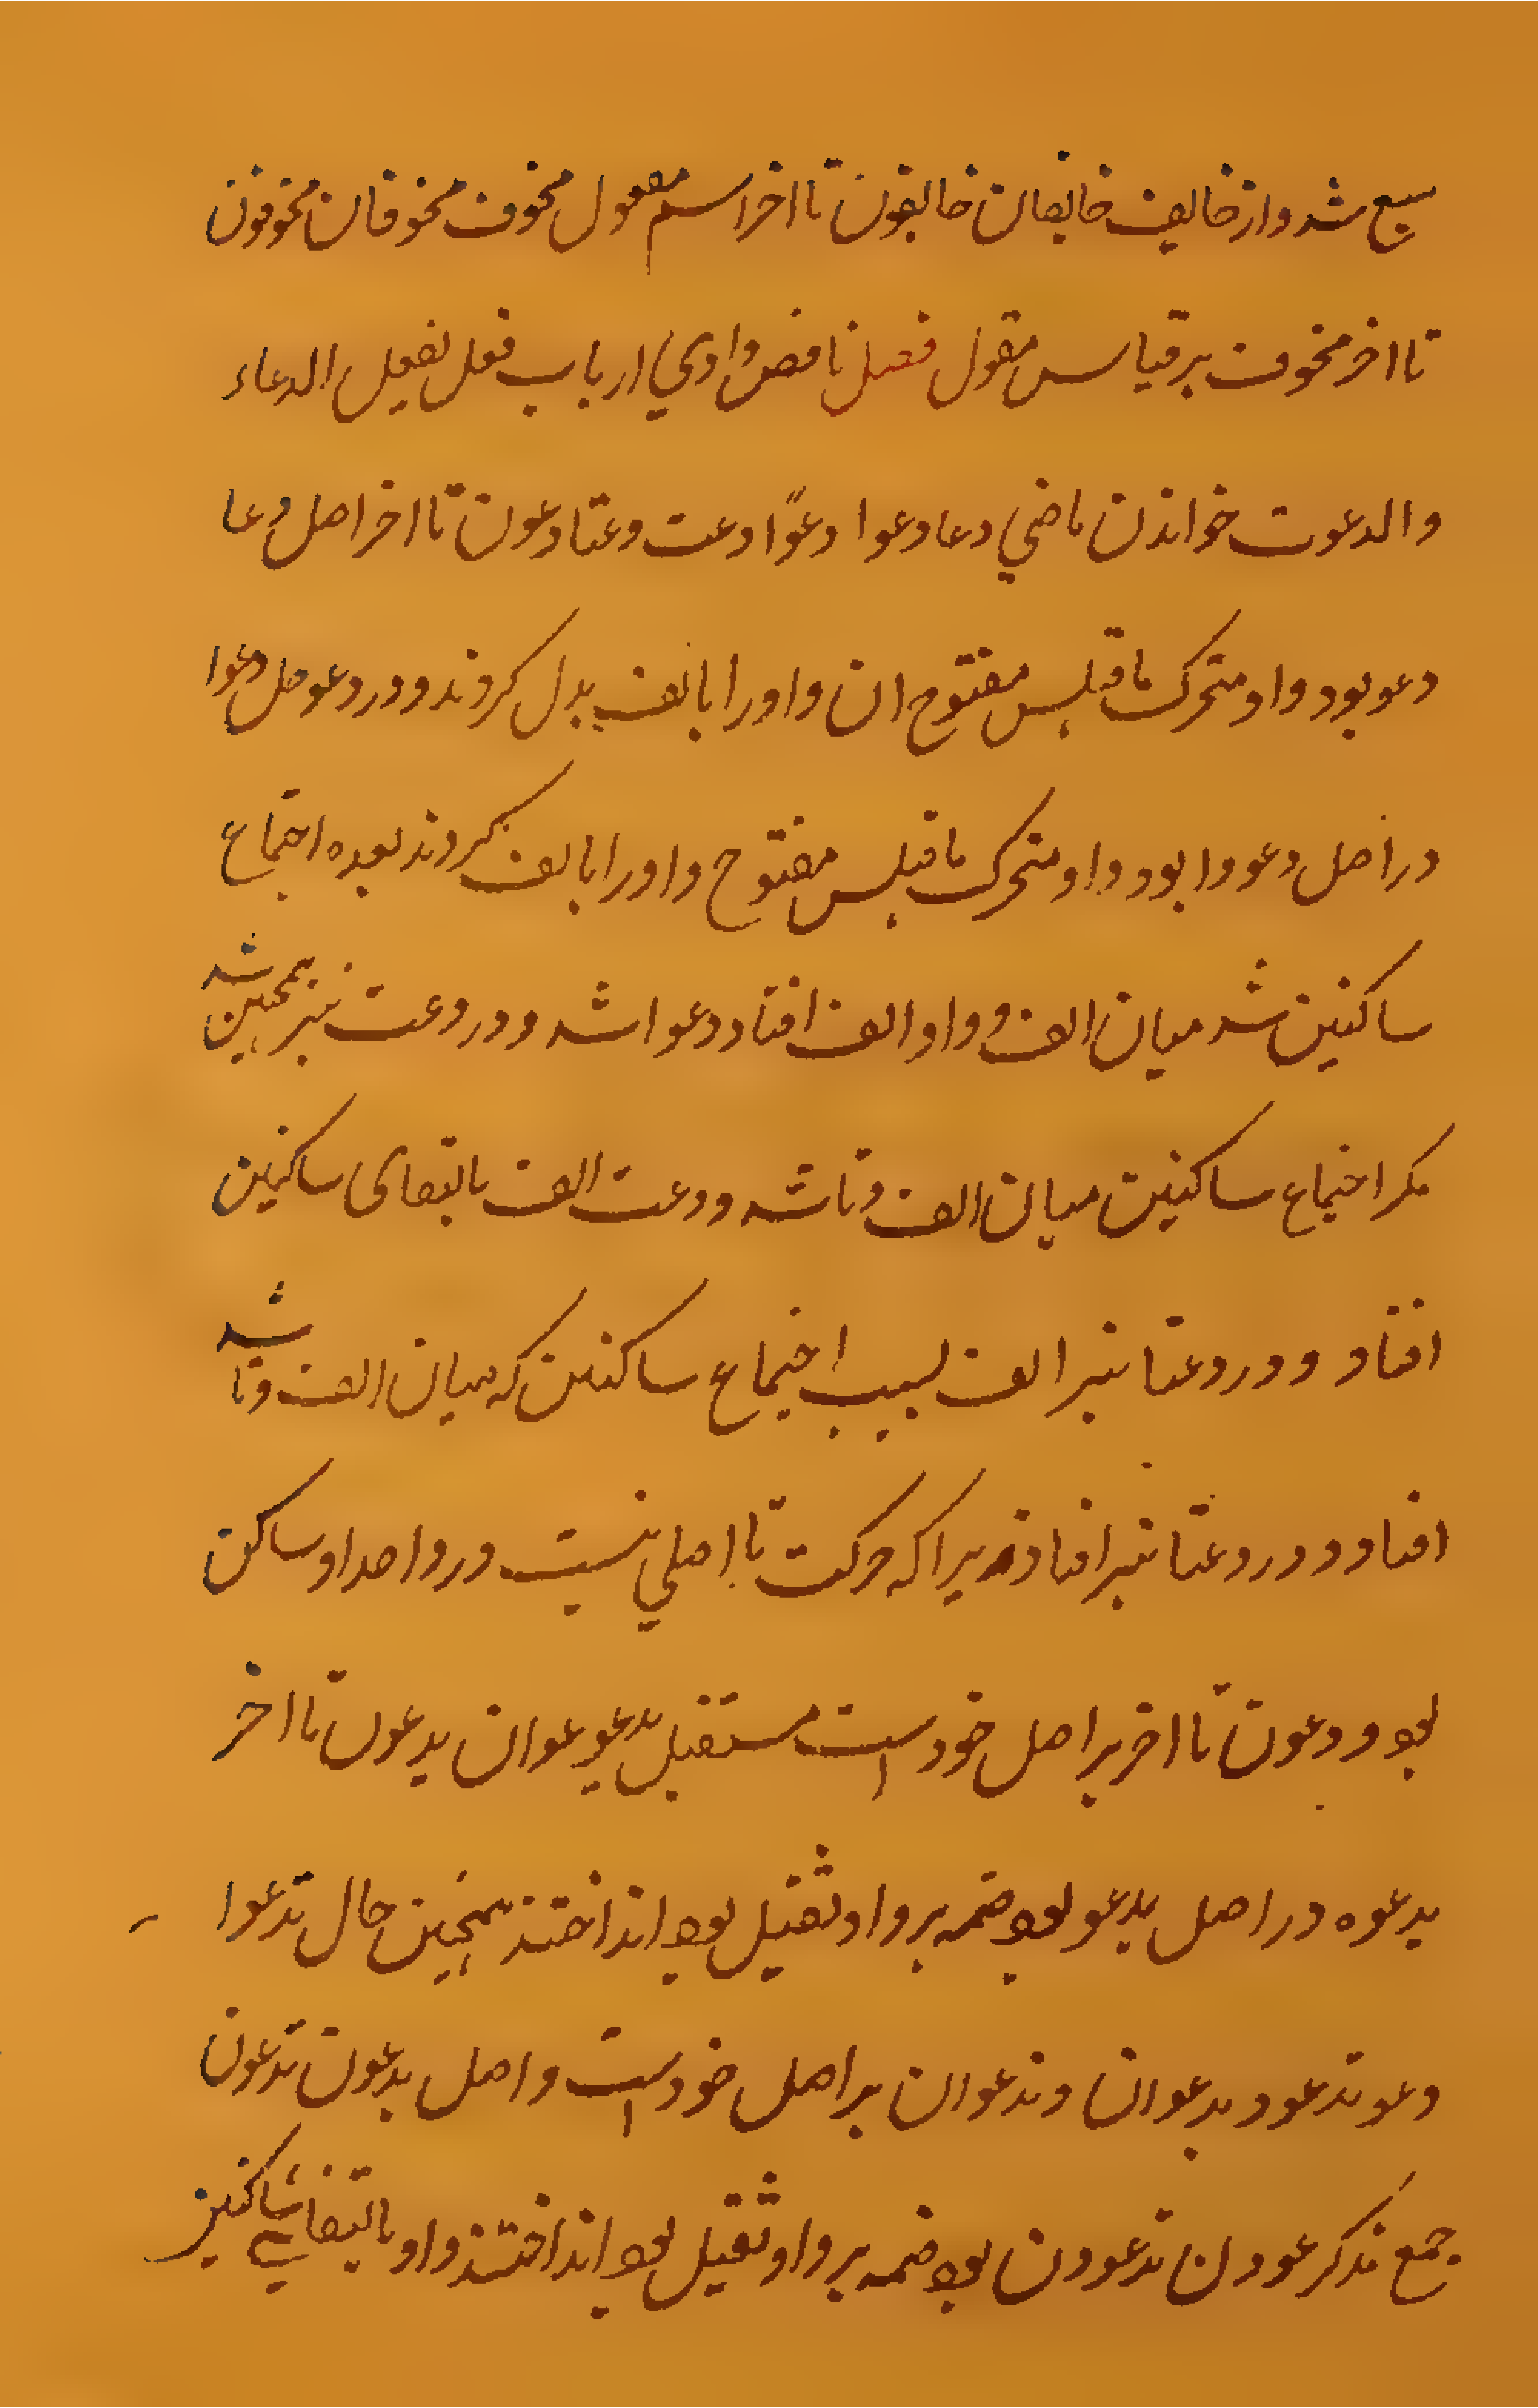 بیع شد و از خایف خایفان خایفون تا اخر اسم مفعول مخوف مخوفان مخوفون
تا اخر مخوف بر قیاس مقول فصل ناقص وادي از باب فعل یفعل الدعاء
والدعوت خواندن ماضي دعا دعوا دعوًا دعت دعتا دعون تا اخر اصل دعا
دعو بود واو متحرک ماقبلس مفتوح ان واو را با الف بدل کردند و در دعو مل دعوا
در اصل دعووا بود واو متحرک ماقبلس مفتوح واو را با الف کردند بعده اجتماع
ساکنین شد میان الف و واو الف افتاد دعوا شد و در دعت نیز همچنین شد
مکر اجتماع ساکنین میان الف و تا شد و دعت الف بالتقای ساکنین
افتاد و در دعتا نیز الف بسبب اجتماع ساکنین که میان الف و تا شد
افتاد و در دعتا نیز افتاد زیرا که حرکت تا اصلي نیست و در واحد او ساکن
بود و دعون تا اخر بر اصل خود است مستقبل یدعو عوان یدعون تا اخر
یدعوه در اصل یدعو بود ضمه بر واو ثقیل بود انداختند همچنین حال تدعوا
دعو ندعو و یدعوان و تدعوان بر اصل خود است و اصل یدعون تدعون
جمع مذکر عوون تدعوون بود ضمه بر واو ثقیل بود انداختند واو بالتقای ساکنین